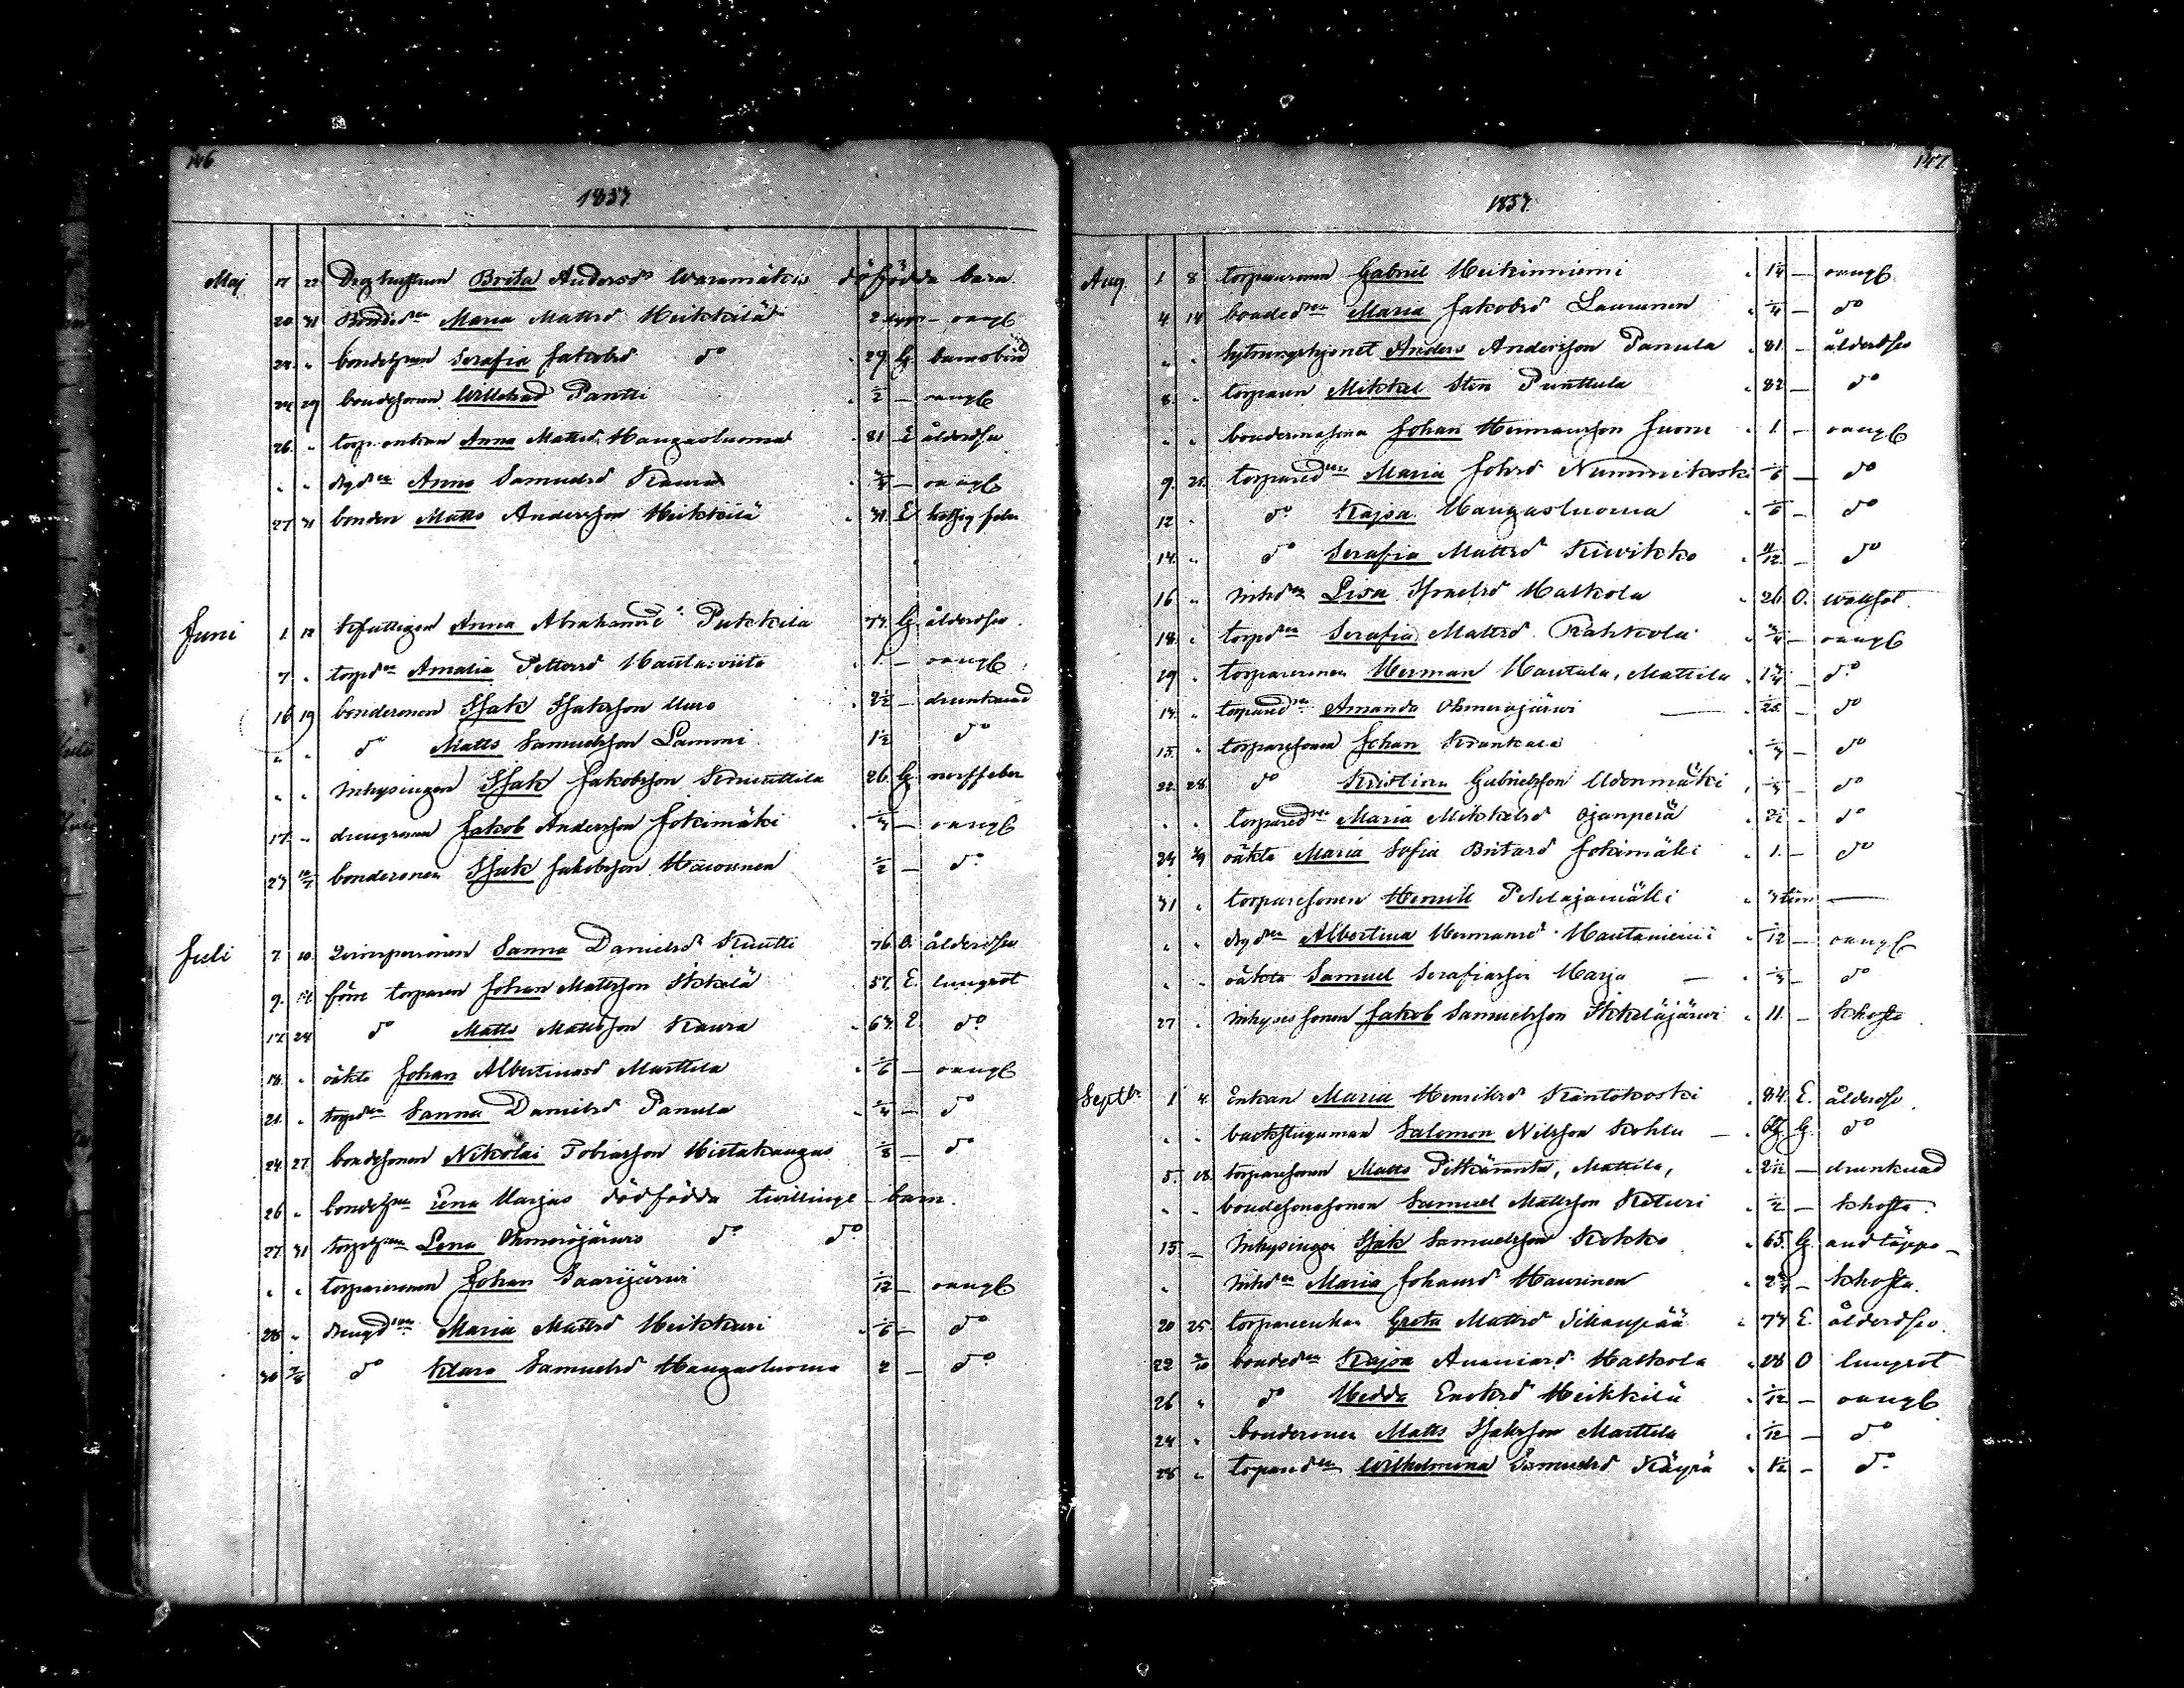 146
1857
Maj 17 22 Drghustrun Brita Andersdr Waramäkis dödfödda barn.
20 31 Bonded:n Maria Mattsd Heikkilä 2 dygn – oangb
24 " bondehun Serafia Jakobsd do 29 G barnsbörd
24 29 bondesonen Willehad Pantti 1/2 – oangb
26 " torp. enkan Anna Mattsd Hangasluoma 81 E ålderdser
" " drgd:n Anna Samuelsd Kaura – oangb
27 31 bonden Matts Andersson Heikkilä 31 E hetsig feber
Juni 1 12 Anna Abrahamsd Pukkila 77 G ålderdser
7 " torpd:n Amalia Pettersd Hautawiita 1 – oangb
16 19 bondesonen Isak Isaksson Uuro 2 1/2 – drunknad
" " do Matts Samuelsson Lammi 1 1/2 do
" " Inhysingen Isak Jakobsson Knuuttila 26 G nerffeber
17 – drengsonen Jakob Andersson Jokimäki – oangb
27 12/7 bondesonen Isak Jakobsson Haurunen 1/2 – do
Juli 7 10 Sanna Danielsd Knutti 76 O. ålderdser
9. förre torparen Johan Mattsson Ikkelä 57. E. lungsot
17 24 do Matts Mattsson Kaura 67. E. do
18. " oäkta Johan Albertinasd Marttila 1/6 – oangb
21. " torpd:n Sanna Danielsd Panula – do
24 27 bondesonen Nikolai Tobiasson Hietakangas – do
26 " bondehun Lena Harjas dödfödda twillinge barn.
27 31 torphun Lena Ohmeröjärwis do do
" " torparesonen Johan Saarijärwi 1/12 – oangb
28 " drengd:n Maria Mattsd Heikkuri 1/6 – do
30 2/8 do Klara Samuelsd Hangasluoma 2 – do
147
1857
Aug. 1 8 torparesonen Gabriel Heikinniemi – oangb
4 14 bonded:n Maria Jakobsd Laurunen – do
" " hytningshjonet Anders Andersson Panula 81. – ålderdser
8. " torparen Mikkel Sten Punttula 82 – do
" " bondemasona Johan Hermansson Juoni 1. – oangb
9. 25. torpared:n Maria Johsd Nummikoski – do
12 " do Kajsa Hangasluoma – do
14. " do Serafia Mattsd Kiwikko 11/12 – do
16 " Inhd:n Lisa Israelsd Malkola 26 O. wattsot
18. " torpd:n Serafia Mattsd Rahkola – oangb
19 " torparesonen Herman Hautala, Mattila – do
14. " torpared:n Amanda Ohmeröjärwi – do
15. " torparesonen Johan Krankala – do
22. 28 do Kristian Gabrielsson Udenmäki – do
" " torpared:n Maria Mikkelsd Ojanperä – do
24 oäkta Maria Sofia Britasd Jokimäki 1. – do
31 " torparesonen Henrik Pehlajamäki tim –
" " drgd:n Albertina Hermansd Hautaniemi 1/12 – oangb
" " oäkta Samuel Serafiasson Harju – do
27 " Inhyses sonen Jakob Samuelsson Ikkeläjärwi 11. – khosta
Septbr 1 4. Enkan Maria Henriksd Käntokoski 84. E. ålderdser
" " backstuguman Salomon Nilsson Kohlu – G. do
5. 18. torparesonen Matts Pitkäranta, Mattila, – drunknad
" " bondesonasonen Samuel Mattsson Keturi 1/2 – khosta
15. – Inhysingen Isak Samuelsson Kokko 65. G. andtäppa
" Inhd:n Maria Johansd Haurinen – khosta.
20 25. torpareenkan Greta Mattsd Sikanpää 77 E. ålderdser.
22 2/10 bonded:n Kajsa Ananiasd Malkola 28 O lungsot
26 " do Hedda Enoksd Heikkilä 1/12 – oangb
24 " bondesonen Matts Isaksson Marttila 1/12 – do
28 " torpared:n Wilhelmina Samuelsd Käyrä – do